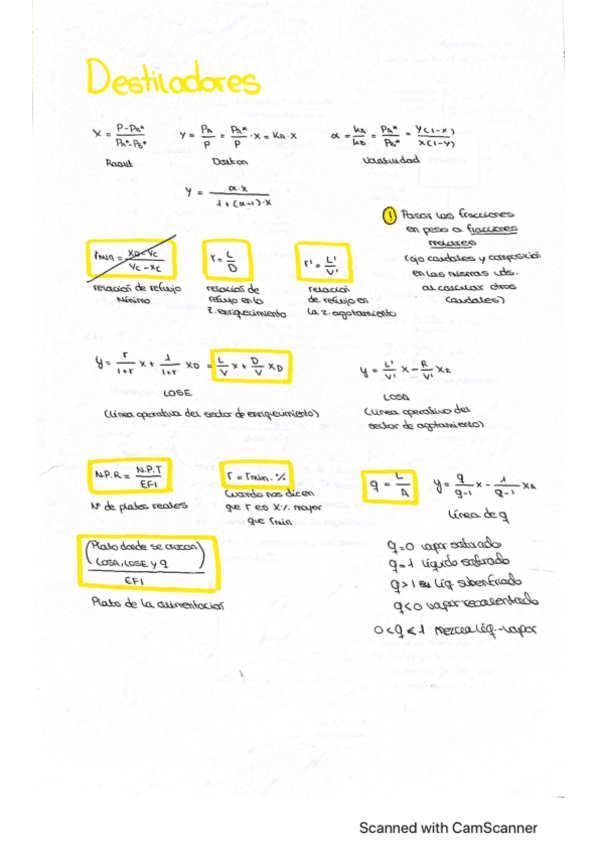 Destiladores
X = P-PB* / PA*-PB*   y = PA/P = PA*/P · X = KA · X   α = KA/KB = PA*/PB* = y(1-x)/x(1-y)
Raoult   Dalton   Volatilidad
y = α·x / 1+(α-1)·x
! Pasar las fracciones
en peso a fracciones
molares
(ojo caudales y composición
en las mismas uds.
al calcular otros
caudales)
rmin = XD-YC / YC-XC   r = L/D   r' = L'/V'
relación de reflujo
mínimo
relación de
reflujo en la
z. enriquecimiento
relación
de reflujo en
la z. agotamiento
y = r/1+r x + 1/1+r XD = L/V x + D/V XD
LOSE
(Línea operativa del sector de enriquecimiento)
y = L'/V' x - R/V' XR
LOSA
(Línea operativa del
sector de agotamiento)
N.P.R = N.P.T / EFI
Nº de platos reales
r = rmin · %
Cuando nos dicen
que r es X% mayor
que rmin
q = L/A   y = q/q-1 x - 1/q-1 XA
Línea de q
(Plato donde se cruzan
LOSA, LOSE y q)
EFI
Plato de la alimentación
q=0 vapor saturado
q=1 líquido saturado
q>1 líq subenfriado
q<0 vapor recalentado
0<q<1 mezcla líq-vapor
Scanned with CamScanner